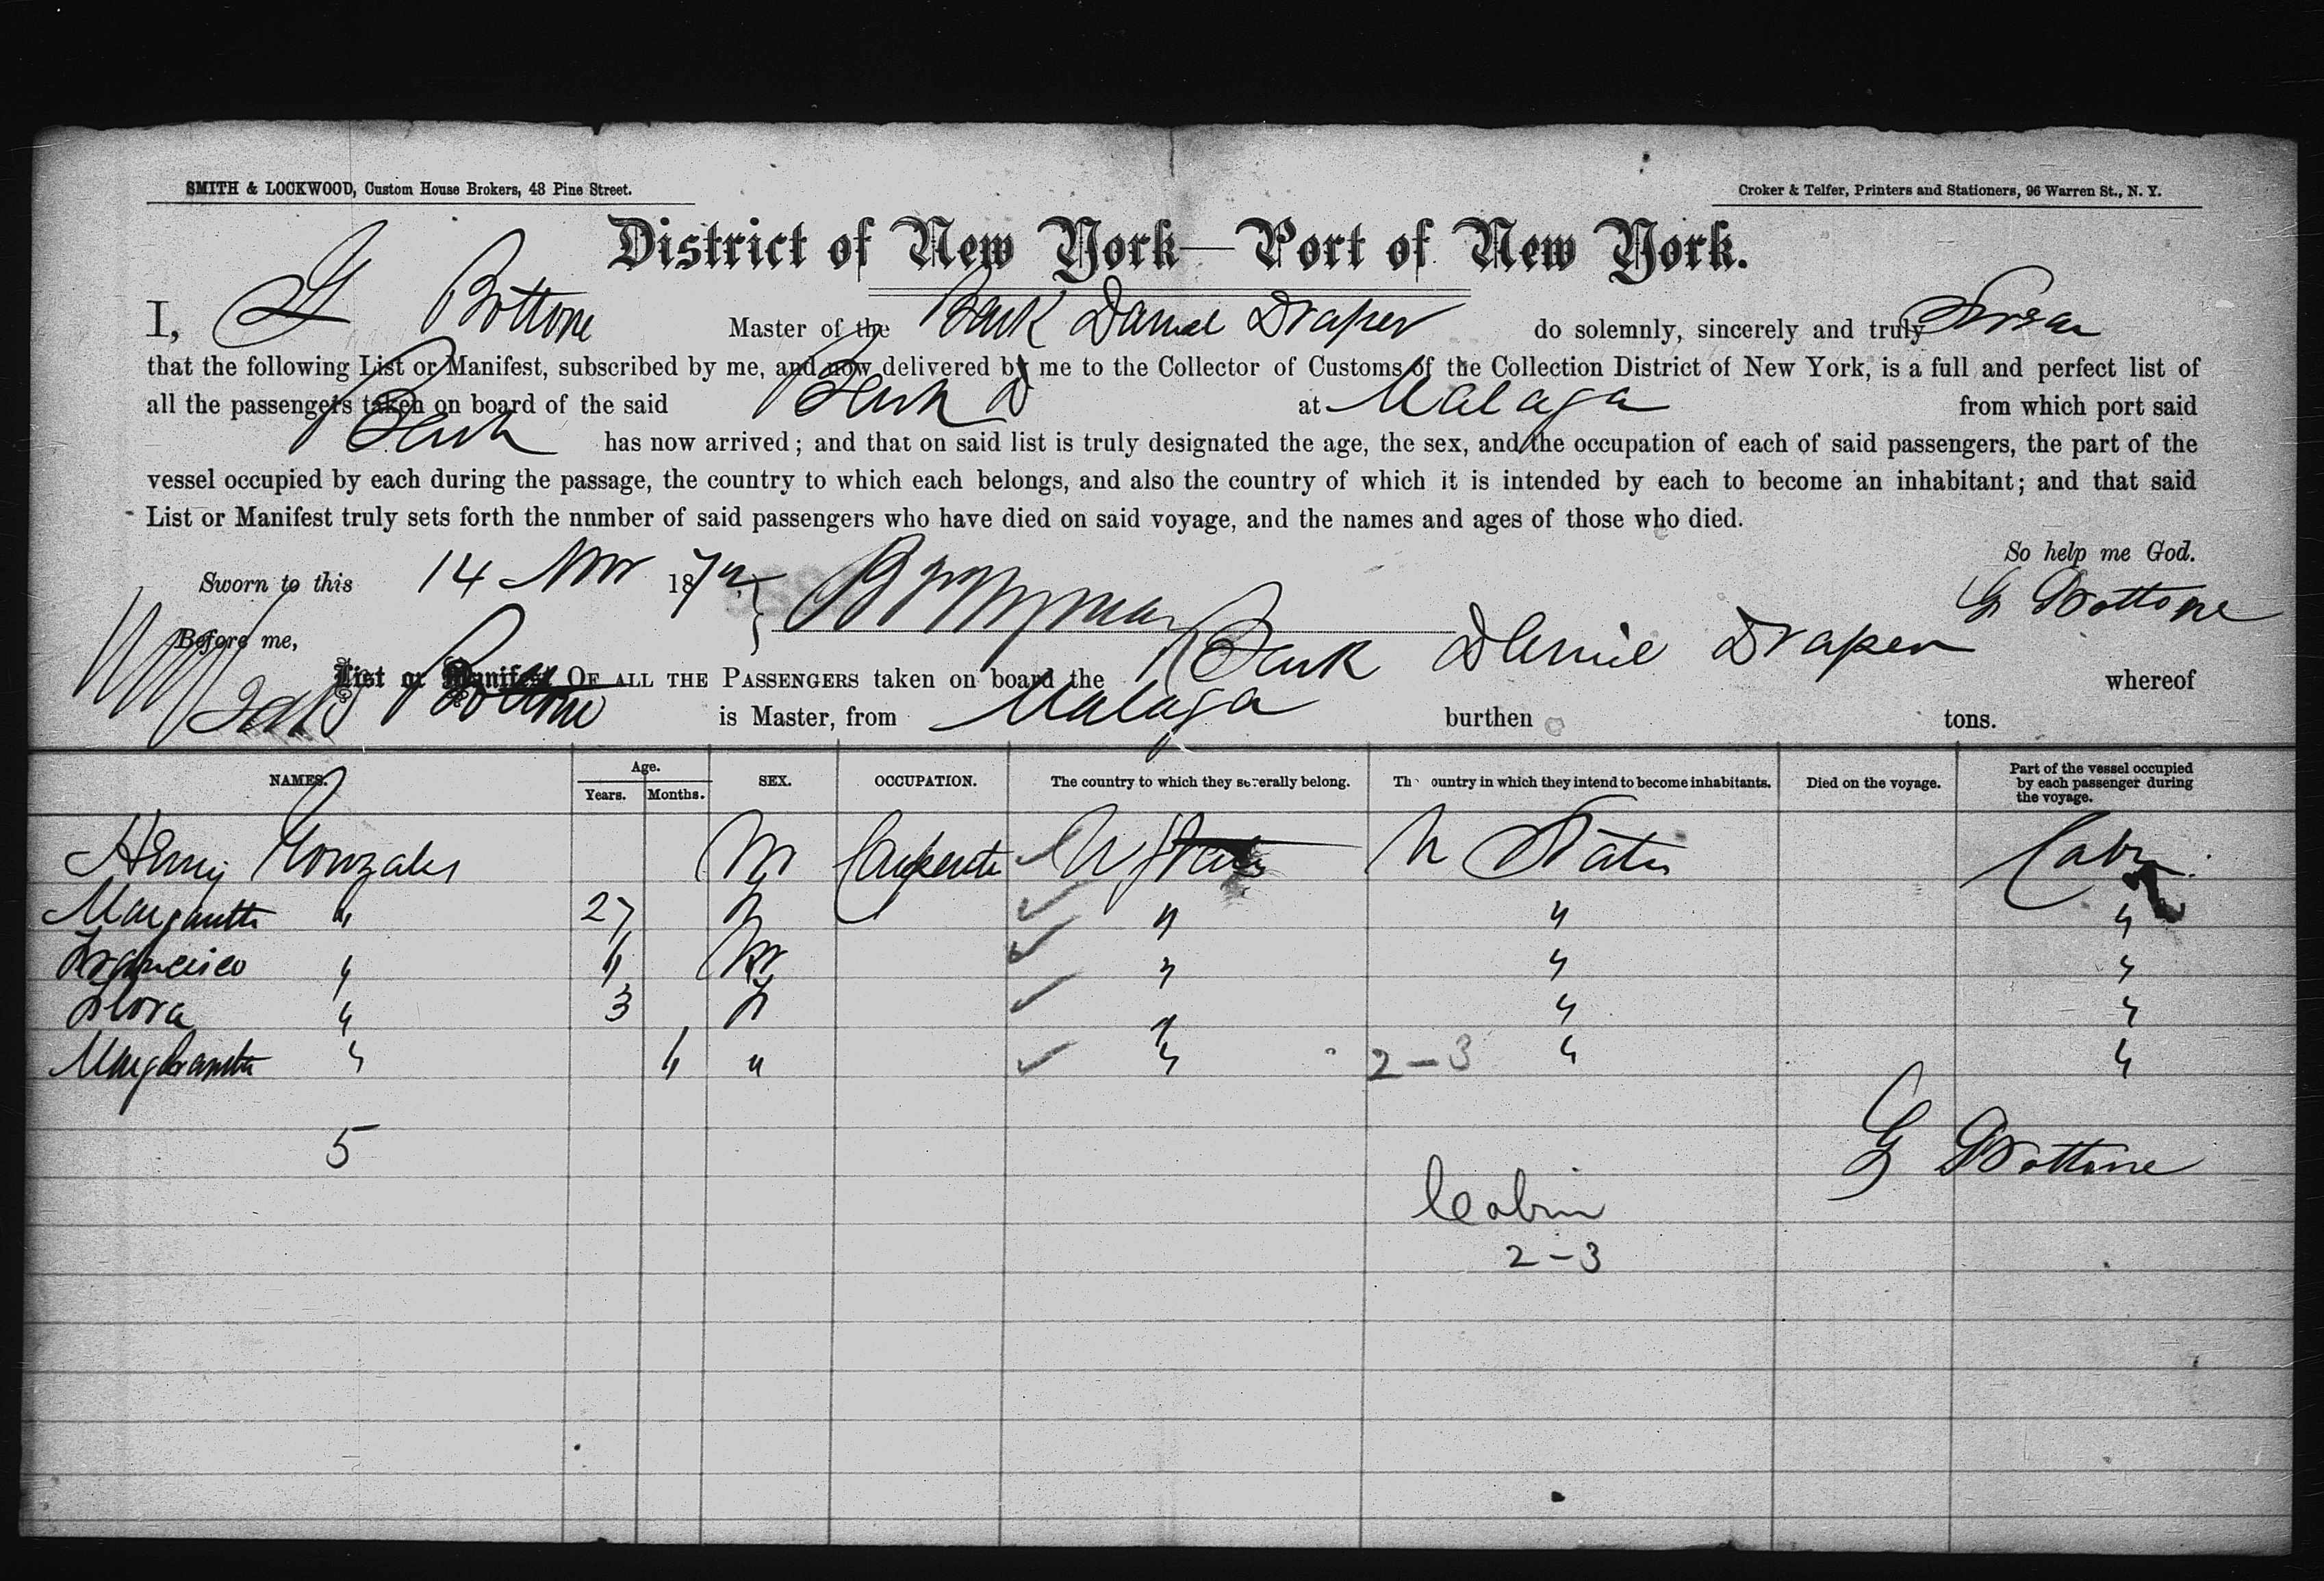 SMITH & LOCKWOOD, Custom House Brokers, 48 Pine Street.
Croker & Telfer, Printers and Stationers, 96 Warren St., N. Y.
District of New York—Port of New York.
I, G Bottone Master of the Bark Daniel Draper do solemnly, sincerely and truly Swear
that the following List or Manifest, subscribed by me, and now delivered by me to the Collector of Customs of the Collection District of New York, is a full and perfect list of
all the passengers taken on board of the said Bark at Malaga from which port said
Bark has now arrived; and that on said list is truly designated the age, the sex, and the occupation of each of said passengers, the part of the
vessel occupied by each during the passage, the country to which each belongs, and also the country of which it is intended by each to become an inhabitant; and that said
List or Manifest truly sets forth the nnmber of said passengers who have died on said voyage, and the names and ages of those who died.
So help me God.
Sworn to this 14 Nov 187 G Bottone
Before me,
List or Manifest OF ALL THE PASSENGERS taken on board the Bark Daniel Draper whereof
Bottone is Master, from Malaga burthen tons.
NAMES. Age. Years. Months. SEX. OCCUPATION. The country to which they severally belong. Th ountry in which they intend to become inhabitants. Died on the voyage. Part of the vessel occupied by each passenger during the voyage.
Henry Gonzales M Carpenter U States U States Cabin
" 27 F " " "
Francisco " 4 M " " "
Flora " 3 F " " "
" 4 " " 2-3 " "
5
G Bottone
Cabin
2-3